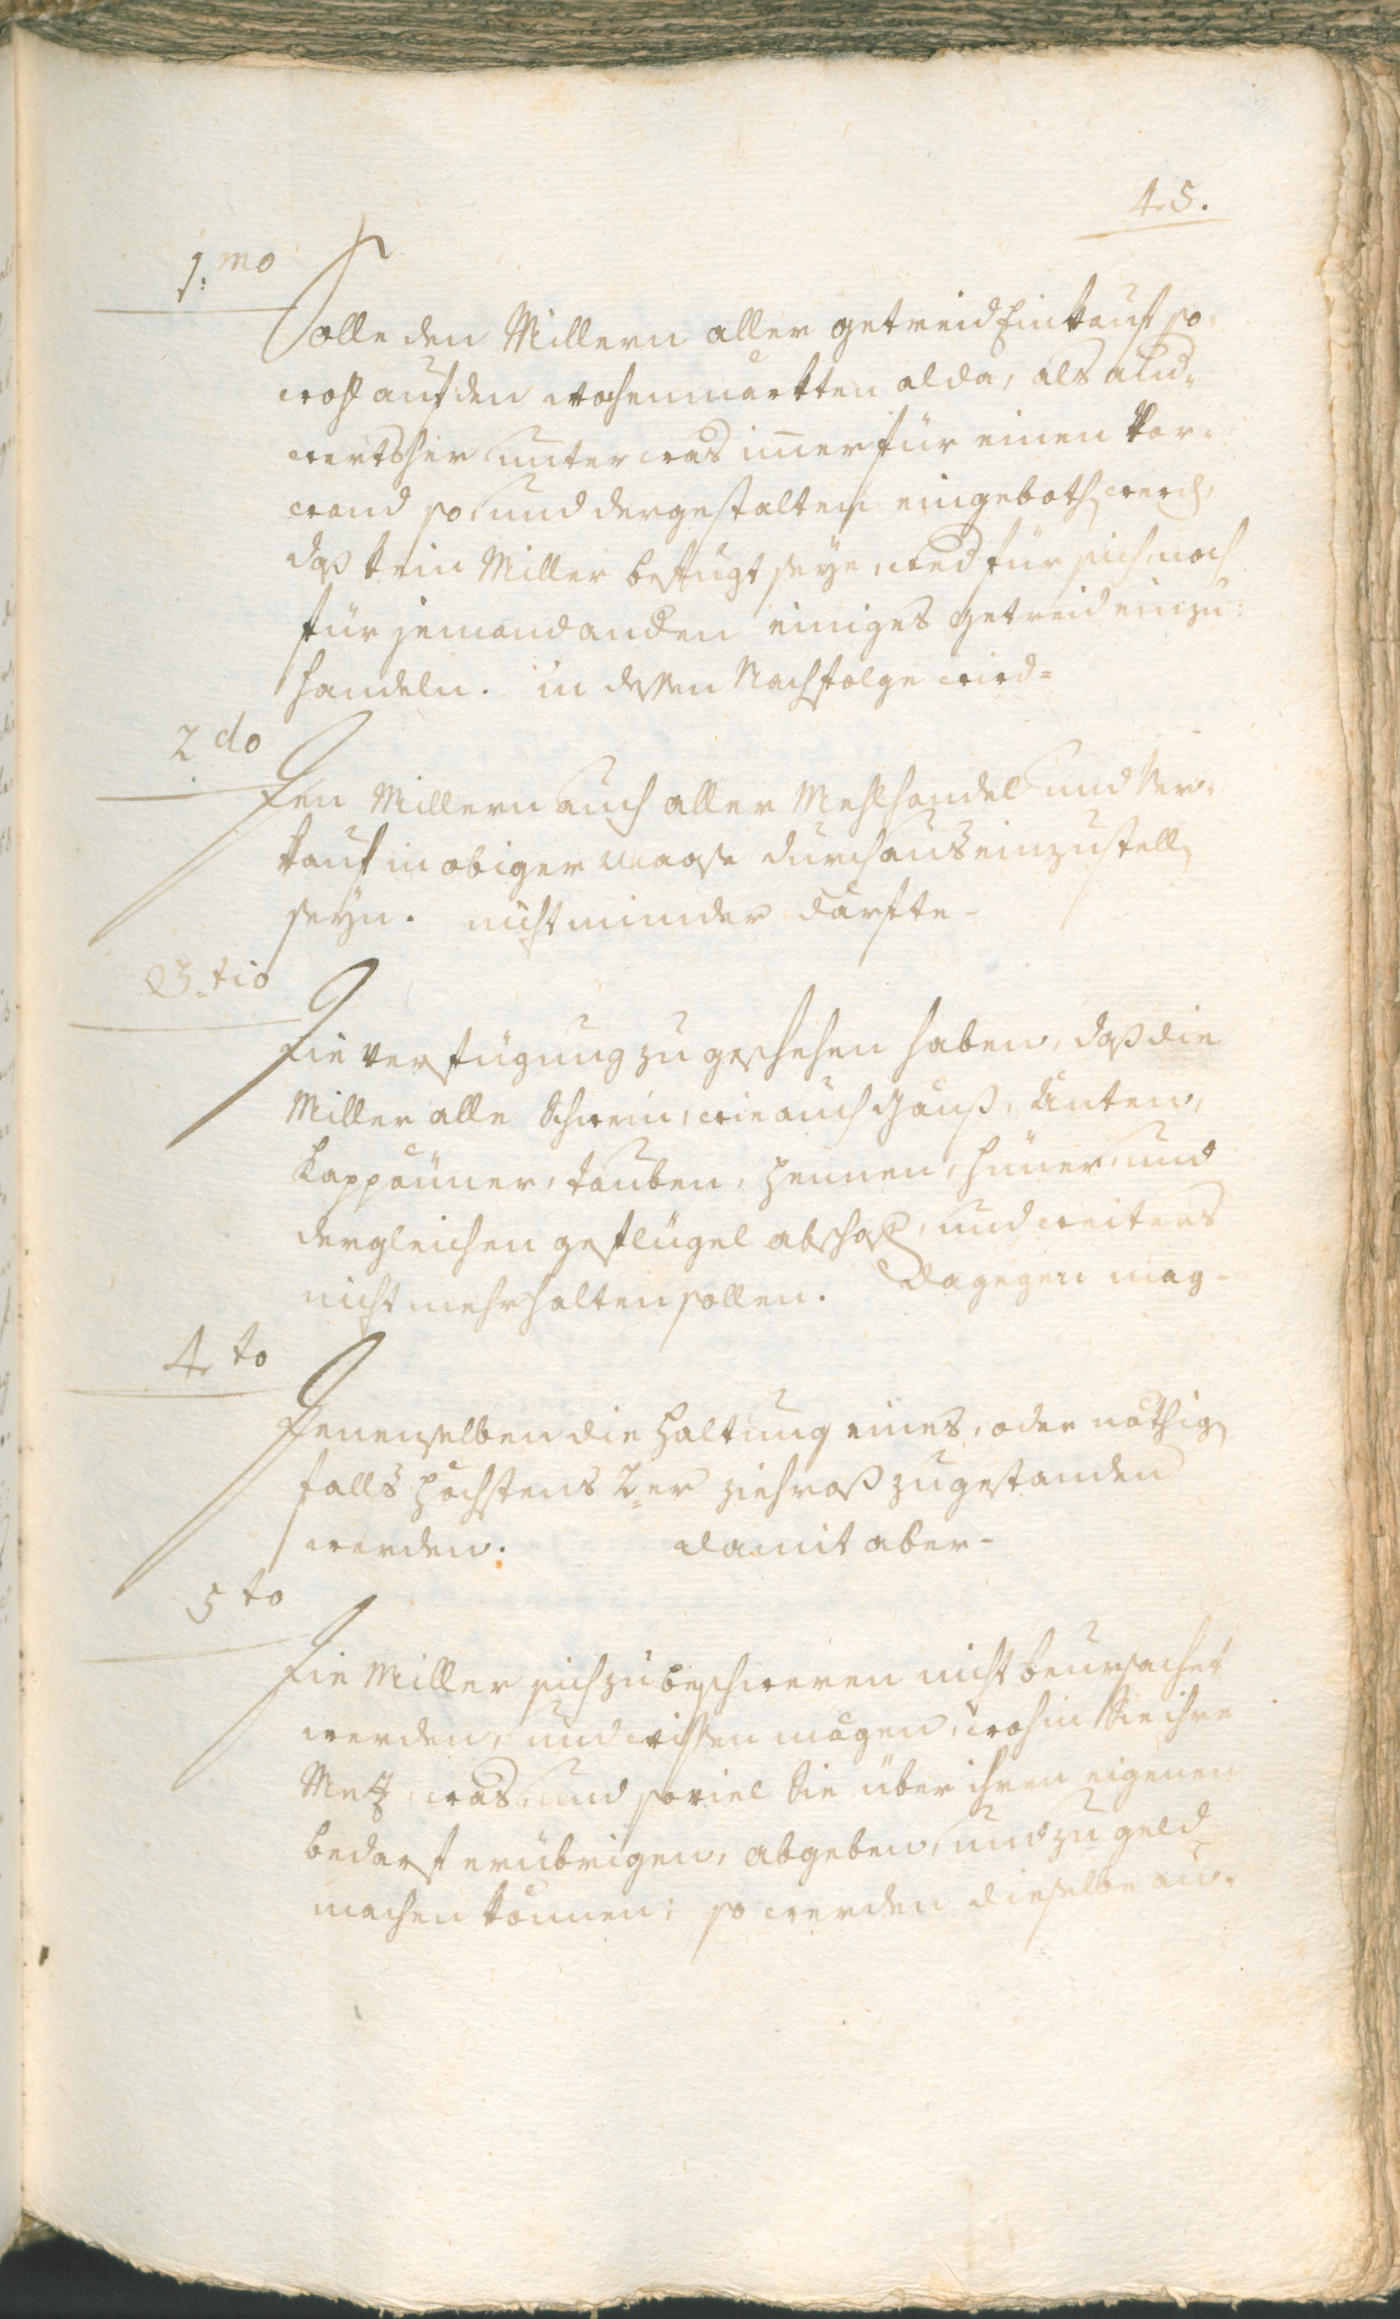 45.
1.mo
Solle den Millern aller getreid Einkauf so-
wohl auf den wochenmarkten alda, als and-
wertsher unter was im̄er für einen vor-
wand so, und dergestalten eingeboth werd,
daß kein Miller befugt seye, wed für sich, noch
für jemand anden einiges getreid einzu:
handeln. in dessen Nachfolge wird=
2do
Den Millern auch aller Mehlhandel und Ver-
kauf in obiger Maase durchaus einzustell
seyn. nicht minder därfte-
3.tio
Die verfügung zu geschehen haben, daß die
Miller alle Schwein, wie auch Gänß, Anten,
Kappäuner, tauben, hennen, hüner, und
dergleichen geflügel abschaff, und weiters
nicht mehr halten sollen. Dagegen mag-
4to
Denenselben die Haltung eines, oder nöthig
falls höchstens 2er ziehroß zugestanden
werden. damit aber-
5to
Die Miller sich zu beschweren nicht beursachet
werden, und wissen mögen, wohin Sie ihre
Metz, was, und soviel Sie über ihren eigenen
bedarf erübrigen, abgeben, und zu geld
machen können; so werden dieselbe an-